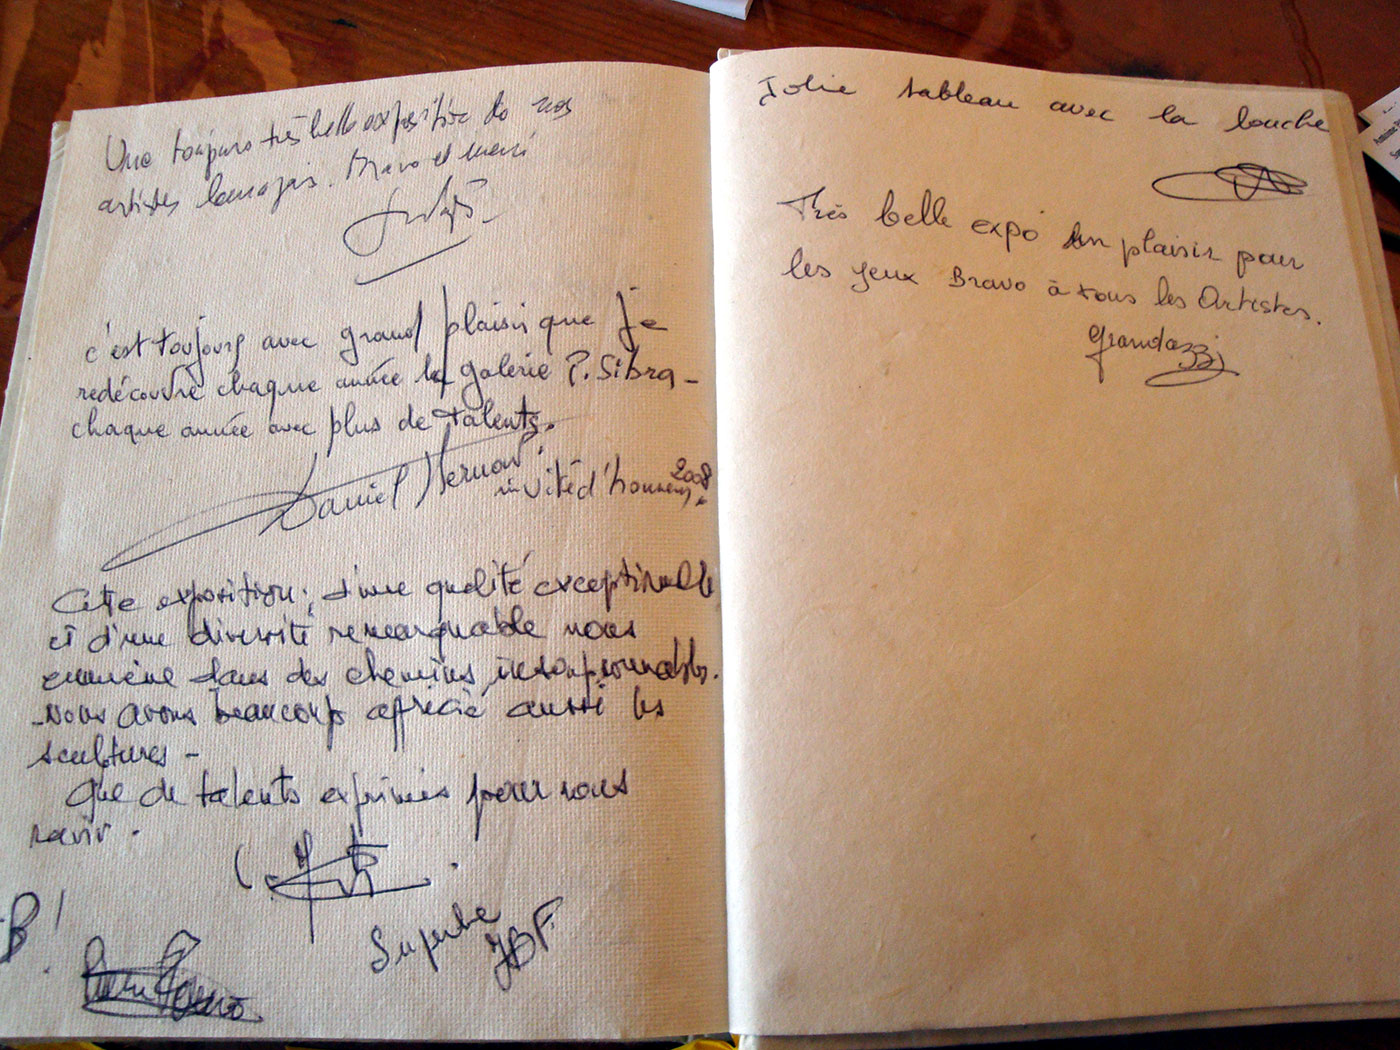 Une toujours très belle exposition de nos
artistes Bravo et merci
c'est toujours avec grand plaisir que je
redécouvre chaque année la galerie P. Sibra -
chaque année avec plus de talents.
Daniel
invité d'honneur 2008
Cette exposition, d'une qualité exceptionnelle
et d'une diversité remarquable nous
emmène dans des chemins insoupçonnables.
Nous avons beaucoup apprécié aussi les
scultures -
Que de talents exprimés pour nous
ravir.
B!
Superbe
JBF
Jolie tableau avec la bouche
Très belle expo Un plaisir pour
les yeux Bravo à tous les Artistes.
Grandazzi